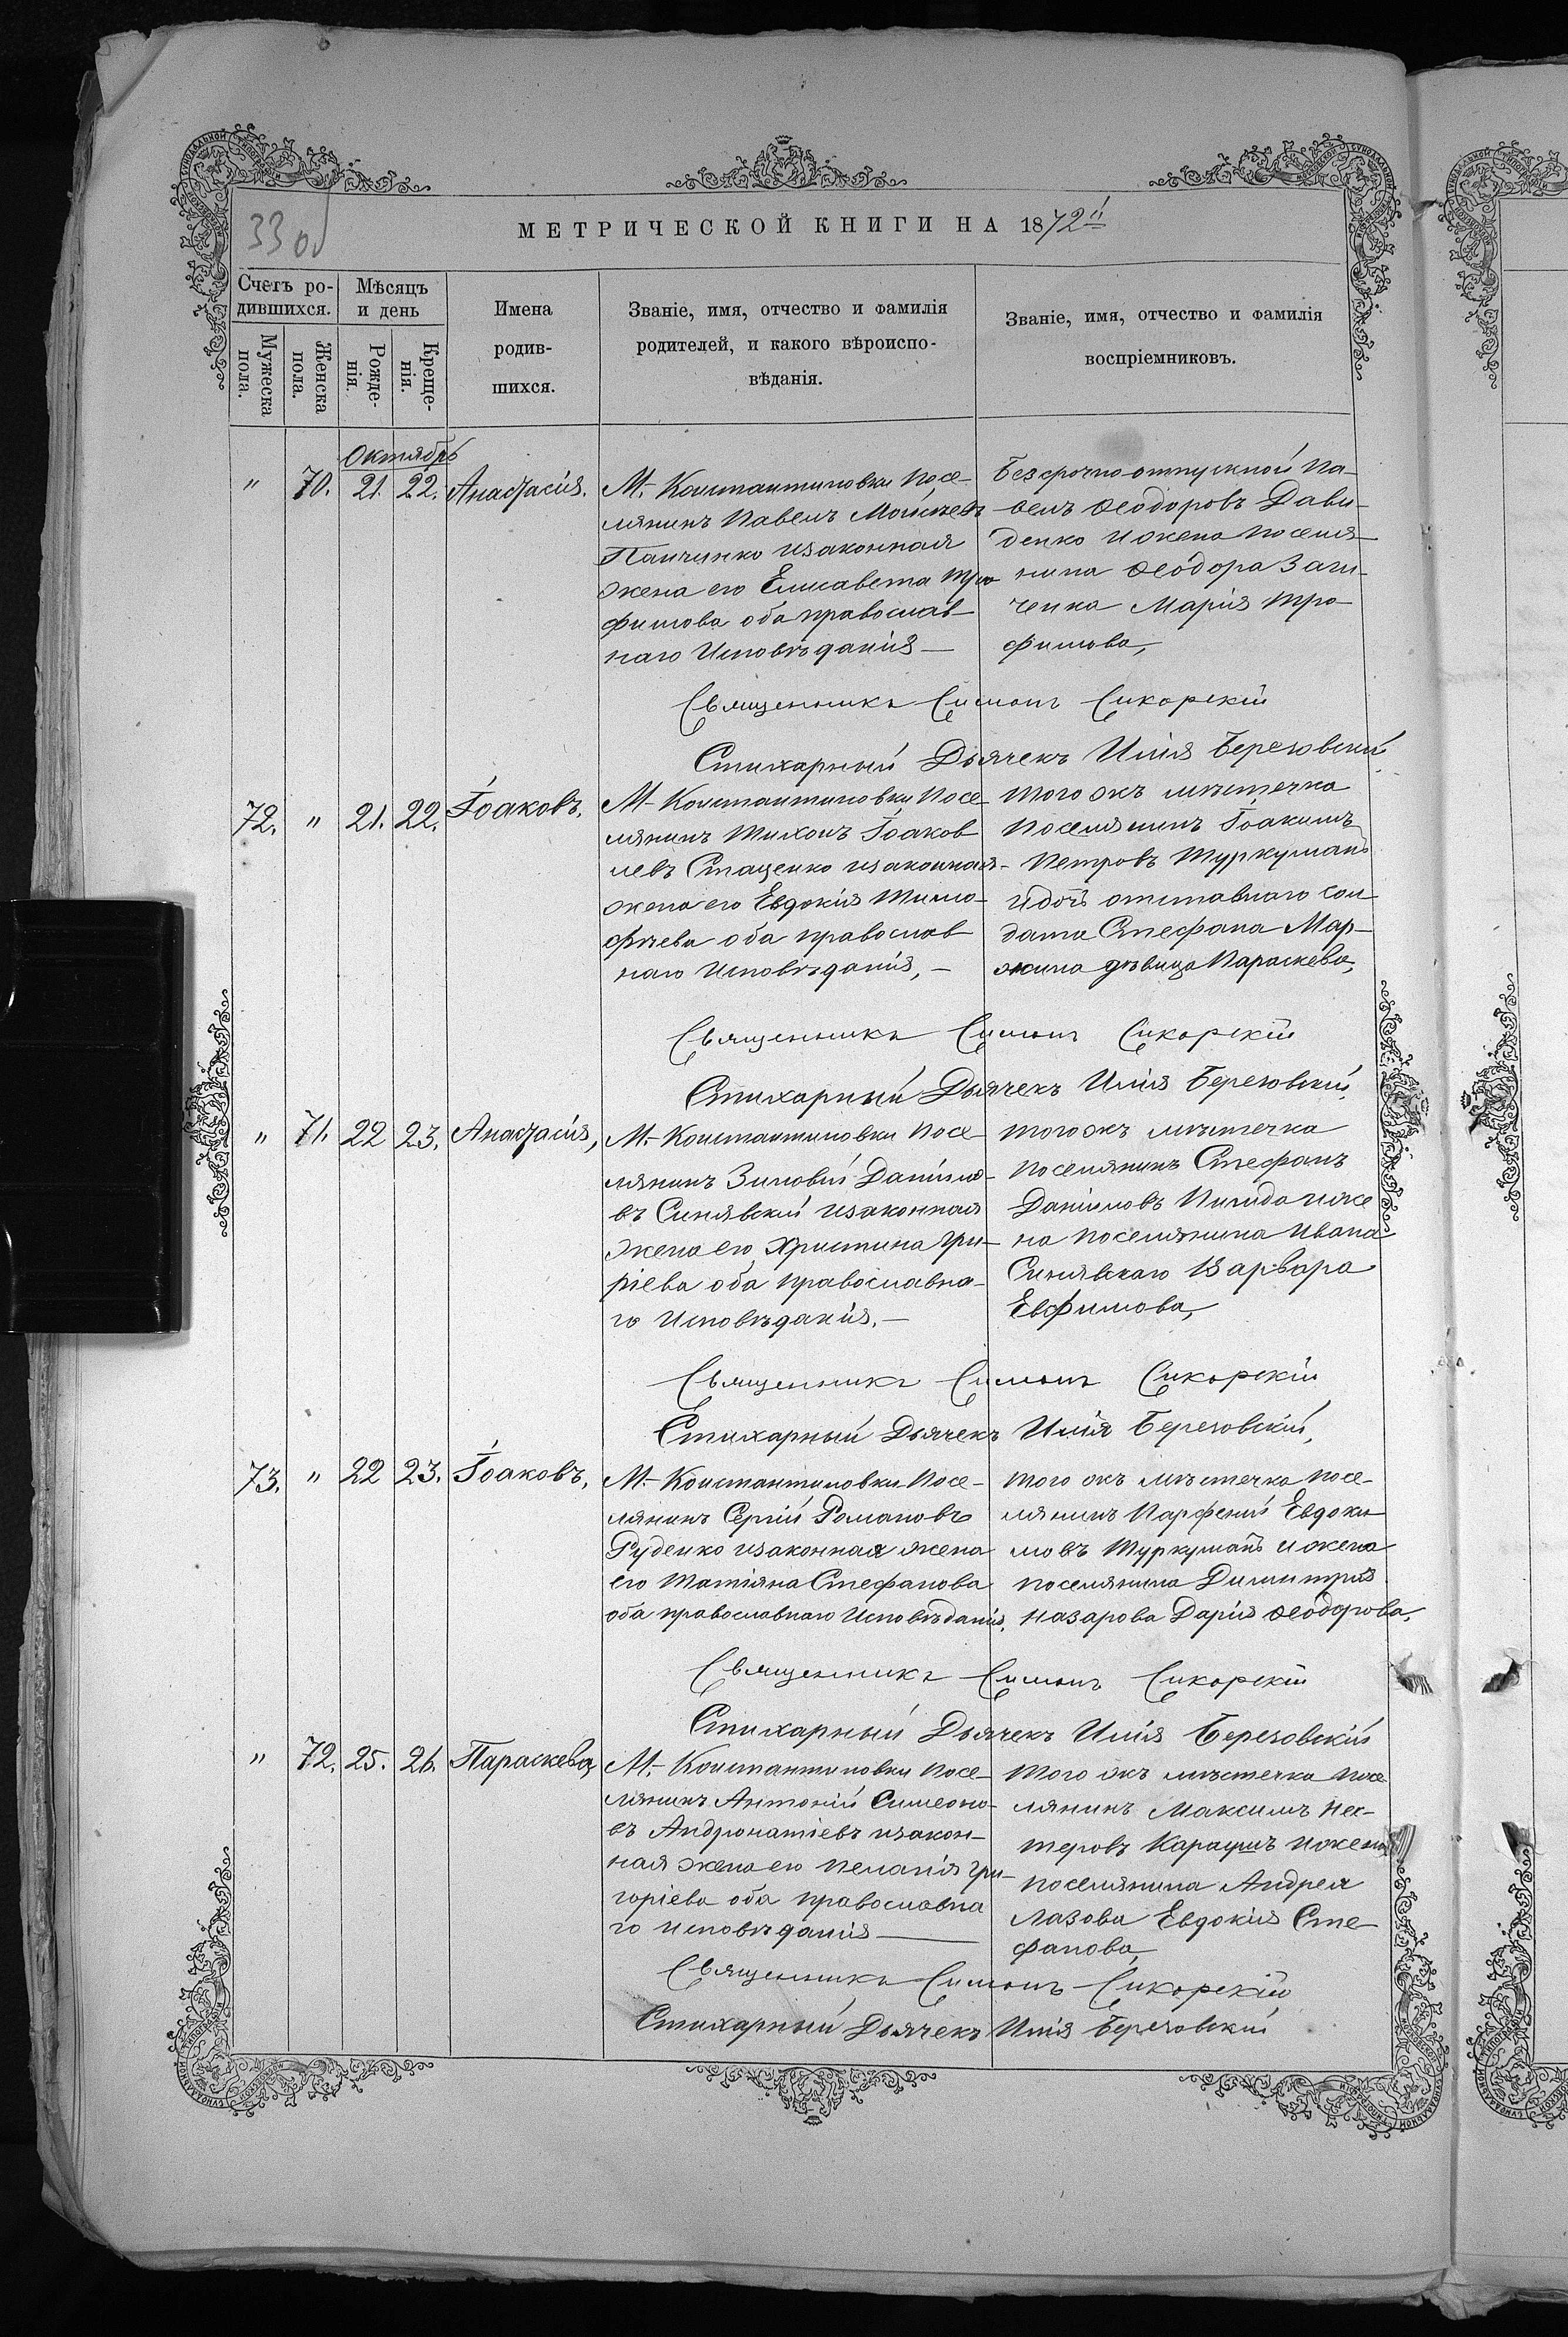 33 об
МЕТРИЧЕСКОЙ КНИГИ НА 1872й
Счетъ ро-
дившихся.
Мѣсяцъ
и день
Имена
родив-
шихся.
Званіе, имя, отчество и фамилія
родителей, и какого вѣроиспо-
вѣданія.
Званіе, имя, отчество и фамилія
воспріемниковъ.
Мужеска
пола.
Женска
пола.
Рожде-
нія.
Креще-
нія.
Октябрь
" 70. 21. 22. Анастасія.
М. Константиновки посе-
лянинъ Павелъ Моисеевъ
Панченко и законная
жена его Елисавета Тро
фимова оба православ
наго исповѣданія —
Безсрочно-отпускной Па-
велъ Ѳеодоровъ Дави-
денко и жена поселя
нина Ѳеодора Заги-
ченка Марія Тро-
фимова,
Священникъ Симонъ Сикорскій
Стихарный Дьячекъ Илія Березовскій
72. " 21. 22. Іоаковъ.
М. Константиновки посе-
лянинъ Тихонъ Іоаков
левъ Стаценко и законная-
жена его Евдокія Тимо-
фѣева оба православ
наго исповѣданія, —
того жъ мѣстечка
поселянинъ Іоакимъ
Петровъ Туркуманъ
и дочь отставнаго сол
дата Стефана Мар-
жина дѣвица Параскева,
Священникъ Симонъ Сикорскій
Стихарный Дьячекъ Илія Березовскій,
" 71. 22 23. Анастасія,
М. Константиновки посе-
лянинъ Зиновій Даніило-
въ Синявскій и законная
жена его Христина Гри-
ріева оба православна-
го исповѣданія. —
того жъ мѣстечка
поселянинъ Стефанъ
Даніиловъ Пигида и же
на поселянина Ивана
Синявскаго Варвара
Евфимова,
Священникъ Симонъ Сикорскій
Стихарный Дьячекъ Илія Березовскій,
73. " 22 23. Іоаковъ,
М. Константиновки посе-
лянинъ Сергій Романовъ
Руденко и законная жена
его Татіяна Стефанова
оба православнаго исповѣданія.
того жъ мѣстечка посе-
лянинъ Парфеній Евдоки
мовъ Туркуманъ и жена
поселянина Димитрія
Назарова Дарія Ѳеодорова,
Священникъ Симонъ Сикорскій
Стихарный Дьячекъ Илія Березовскій
" 72. 25. 26. Параскева,
М. Константиновки посе-
лянинъ Антоній Симеоно-
въ Андронатіевъ и закон-
ная жена его Пелагія Гри-
горіева оба православна
го исповѣданія —
того жъ мѣстечка посе
лянинъ Максимъ Нес-
теровъ Караушъ и жена
поселянина Андрея
Лазова Евдокія Сте-
фанова,
Священникъ Симонъ Сикорскій
Стихарный Дьячекъ Илія Березовскій